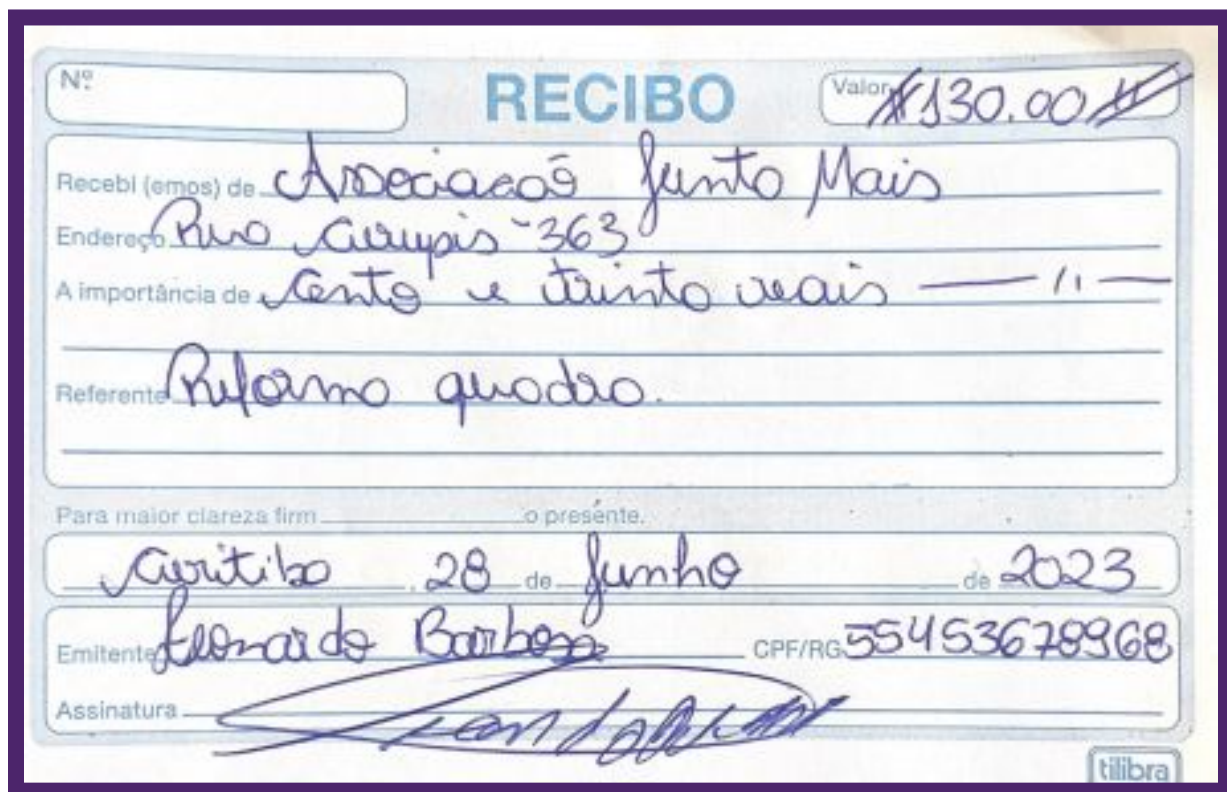 Nº
RECIBO
Valor #130.00#
Recebi (emos) de Associacaõ Junto Mais
Endereço Rua Curupis - 363
A importância de Cento e trinta reais —— 11 ——
Referente Reforma quadro.
Para maior clareza firm o presente.
Curitiba, 28 de Junho de 2023
Emitente Leonardo Barbosa CPF/RG 55453678968
Assinatura
tilibra